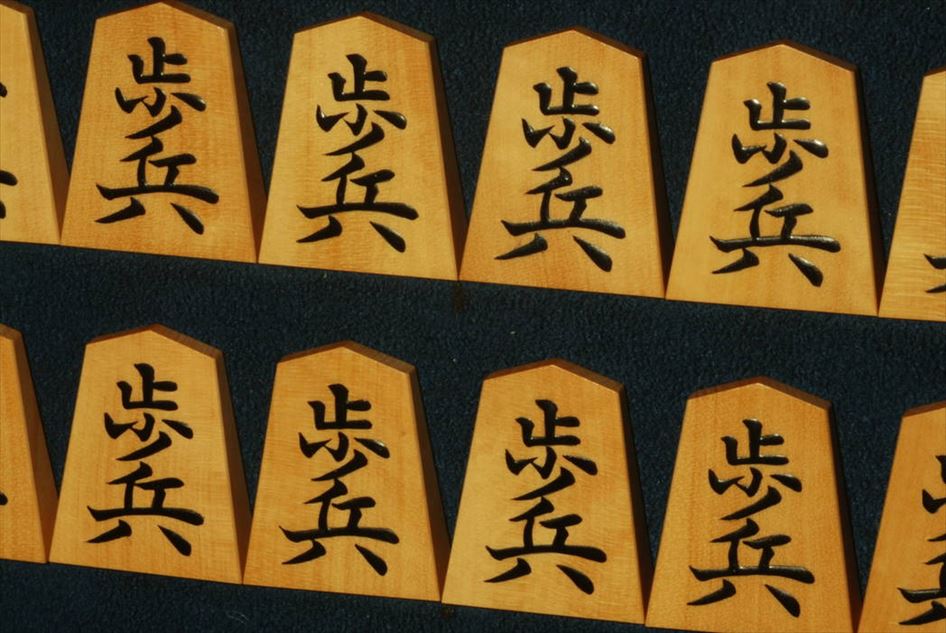 歩兵
歩兵
歩兵
歩兵
歩兵
歩兵
歩兵
歩兵